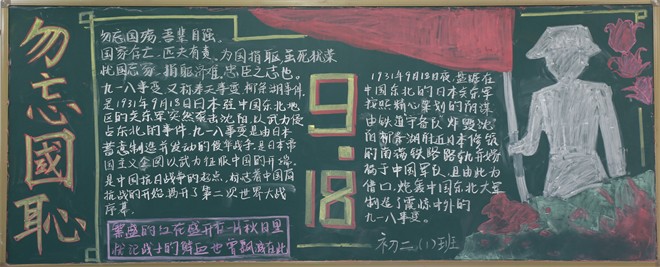 勿忘國恥
勿忘国病,吾辈自强。
国家存亡,匹夫有责,为国捐躯,虽死犹荣
忧国忘家,捐躯济难,忠臣之志也。
九一八事变又称奉天事变、柳条湖事件,
是1931年9月18日日本驻中国东北地
区的关东军突然袭击沈阳,以武力侵
占东北的事件。九一八事变是由日本
蓄意制造并发动的侵华战争,是日本帝
国主义企图以武力征服中国的开端,
是中国抗日战争的起点,标志着中国
抗战的开始,揭开了第二次世界大战
序幕。
繁盛的红花盛开在一片秋日里
战士的鲜血也曾飘洒在此
9·18
1931年9月18日夜,盘踞在
中国东北的日本关东军
按照精心策划的阴谋
由铁道守备队炸毁沈
阳柳条湖附近日本修筑
的南满铁路路轨并嫁
祸于中国军队,日由此为
借口,炮轰中国东北大军
制造了震惊中外的
九一八事变。
初二(1)班